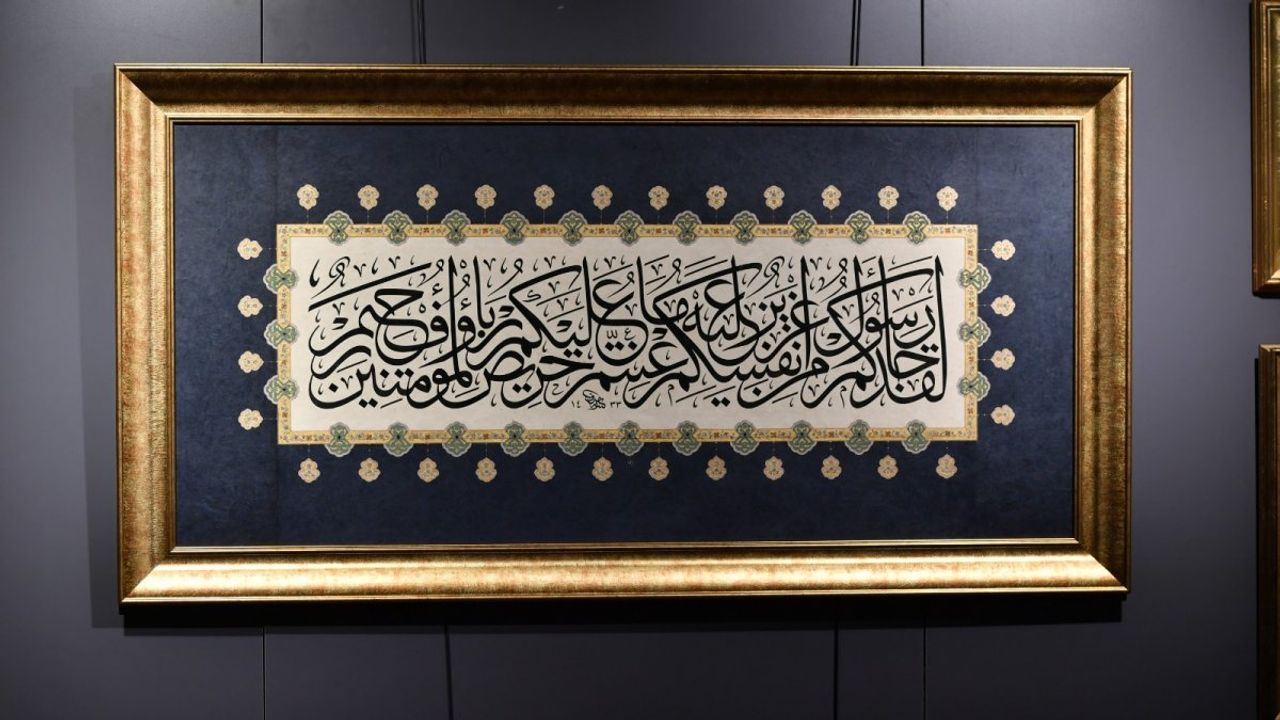 لقد جاءكم رسول من أنفسكم عزيز عليه ما عنتم حريص عليكم بالمؤمنين رؤف رحيم
١٤٣٣